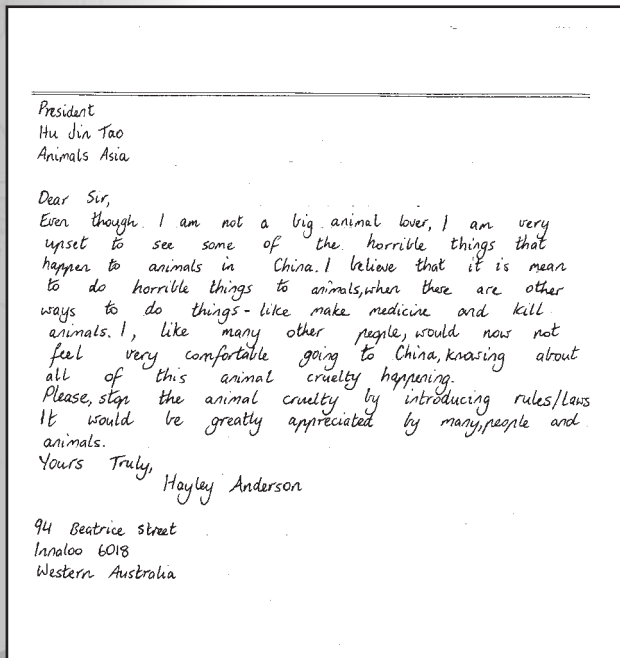 President
Hu Jin Tao
Animals Asia
Dear Sir,
Even though I am not a big animal lover, I am very
upset to see some of the horrible things that
happen to animals in China. I believe that it is mean
to do horrible things to animals, when there are other
ways to do things - like make medicine and kill
animals. I, like many other people, would now not
feel very comfortable going to China, knowing about
all of this animal cruelty happening.
Please, stop the animal cruelty by introducing rules/laws
It would be greatly appreciated by many, people and
animals.
Yours Truly,
Hayley Anderson
94 Beatrice Street
Innaloo 6018
Western Australia